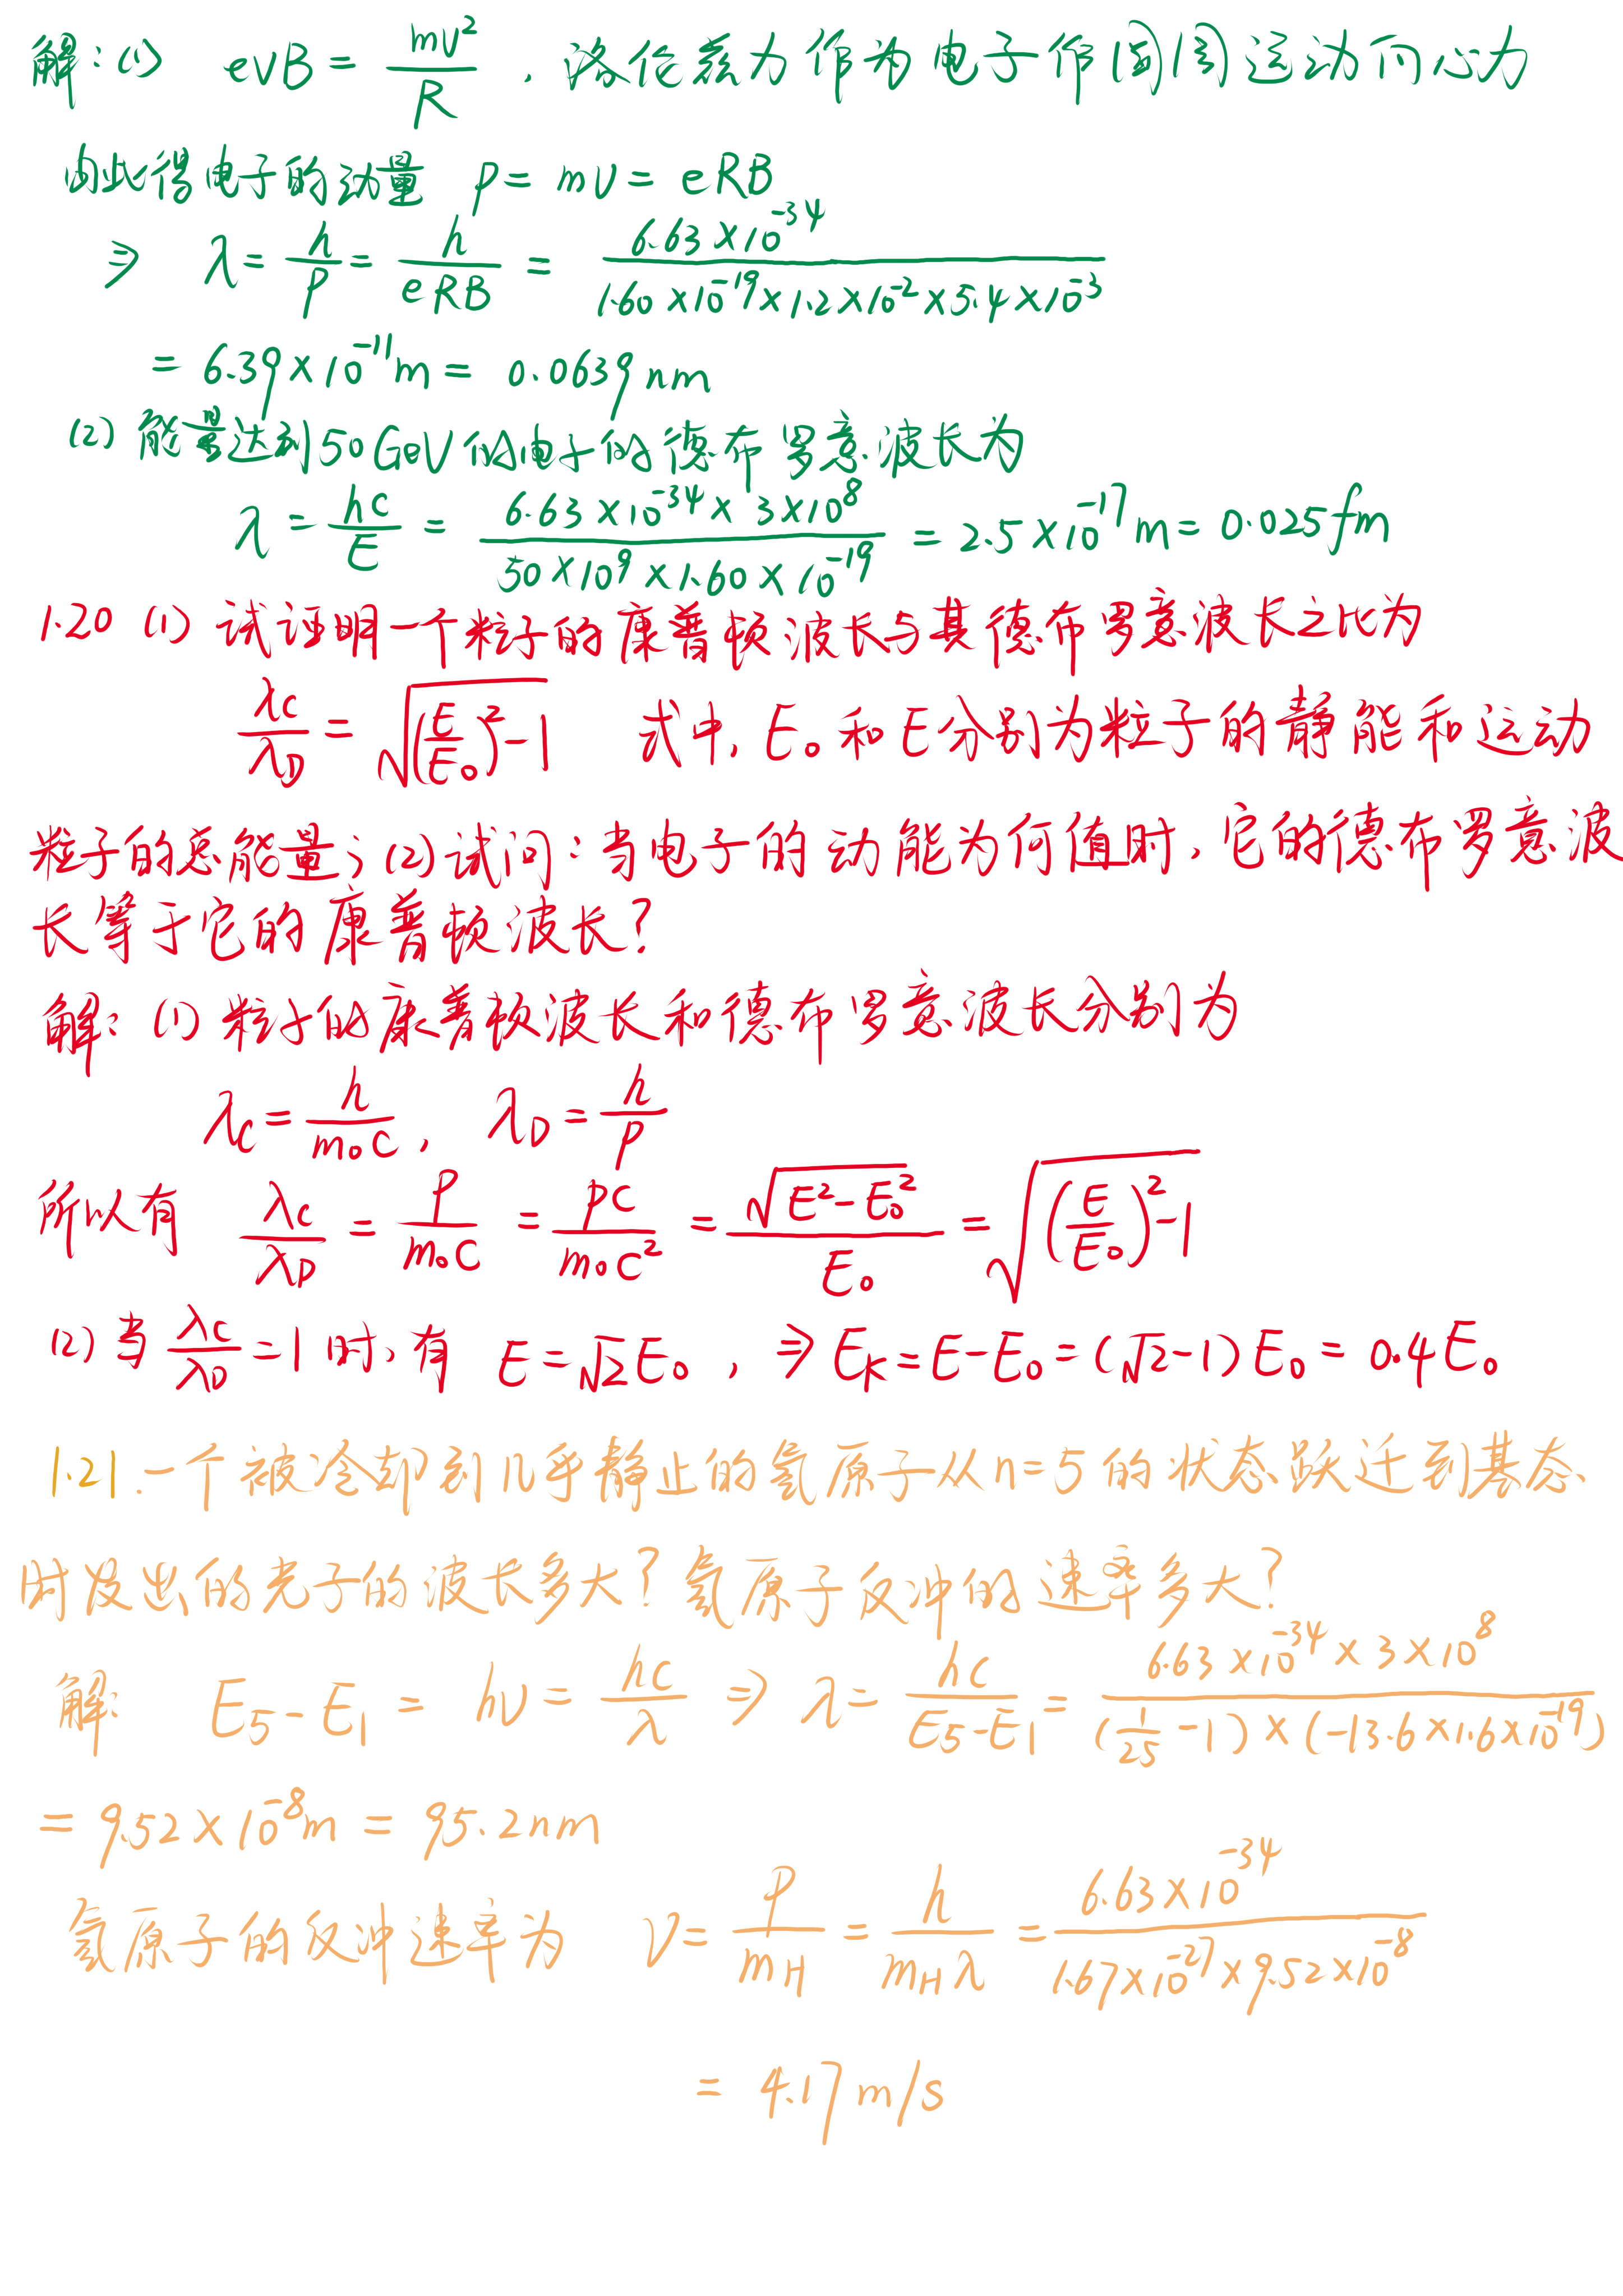 解：(1) evB = mv²/R ，洛伦兹力作为电子作圆周运动向心力
由此得电子的动量 p = mv = eRB
⇒ λ = h/p = h/eRB = 6.63×10⁻³⁴/1.60×10⁻¹⁹×1.2×10⁻²×5.4×10⁻³
= 6.39×10⁻¹¹m = 0.0639nm
(2) 能量达到50GeV的电子的德布罗意波长为
λ = hc/E = 6.63×10⁻³⁴×3×10⁸/50×10⁹×1.60×10⁻¹⁹ = 2.5×10⁻¹⁷m = 0.025fm
1.20 (1) 试证明一个粒子的康普顿波长与其德布罗意波长之比为
λc/λD = √((E/E₀)²-1) 式中, E₀和E分别为粒子的静能和运动
粒子的总能量；(2)试问：当电子的动能为何值时，它的德布罗意波
长等于它的康普顿波长？
解：(1) 粒子的康普顿波长和德布罗意波长分别为
λc = h/m₀c , λD = h/p
所以有 λc/λD = p/m₀c = pc/m₀c² = √(E²-E₀²)/E₀ = √((E/E₀)²-1)
(2) 当 λc/λD = 1 时，有 E = √2E₀ , ⇒ Ek = E-E₀ = (√2-1)E₀ = 0.4E₀
1.21.一个被冷却到几乎静止的氢原子从n=5的状态跃迁到基态
时发出的光子的波长多大？氢原子反冲的速率多大？
解： E₅-E₁ = hν = hc/λ ⇒ λ = hc/E₅-E₁ = 6.63×10⁻³⁴×3×10⁸/(1/25-1)×(-13.6×1.6×10⁻¹⁹)
= 9.52×10⁻⁸m = 95.2nm
氢原子的反冲速率为 v = p/mH = h/mHλ = 6.63×10⁻³⁴/1.67×10⁻²⁷×9.52×10⁻⁸
= 4.17m/s